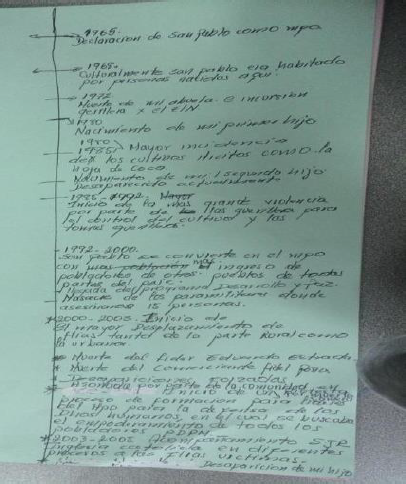 1965.
Declaracion de San Pablo como mpo
1965.
Culturalmente san pablo era habitado
por personas nativos aqui.
1972
Muerte de mi abuela e incursion
x el ELN
1980
Nacimiento de mi primer hijo
1980
1985 Mayor incidencia
de los cultivos ilicitos como la
Hoja de Coca
Nacimiento de mi segundo hijo
Desaparecido actualmente
1985-1992.
Inicio de la mas grande violencia
por parte de las guerrillas para
el control del cultivos y las
1992-2000.
San pablo se convierte en el mpo
con mas ingreso de
pobladores de otros pueblos de todas
partes del pais.
Llegada del programa Desarrollo y Paz.
Masacre de los paramilitares donde
asesinaron 15 personas.
2000-2003. Inicio de
El mayor Desplazamiento de
flias tanto de la parte Rural como
la urbana.
Muerte del lider Eduardo
Muerte del Comerciante fidel
Desapariciones
por parte de la comunidad
proceso de formacion para
del Mpo para la defensa de los
DDHH humanos en el cual se buscaba
el empoderamiento de todos los
pobladores PDPM
2003-2005 Acompañamiento SJR
Iglesia catolica en diferentes
procesos a las flias victimas.
Desaparicion de mi hijo